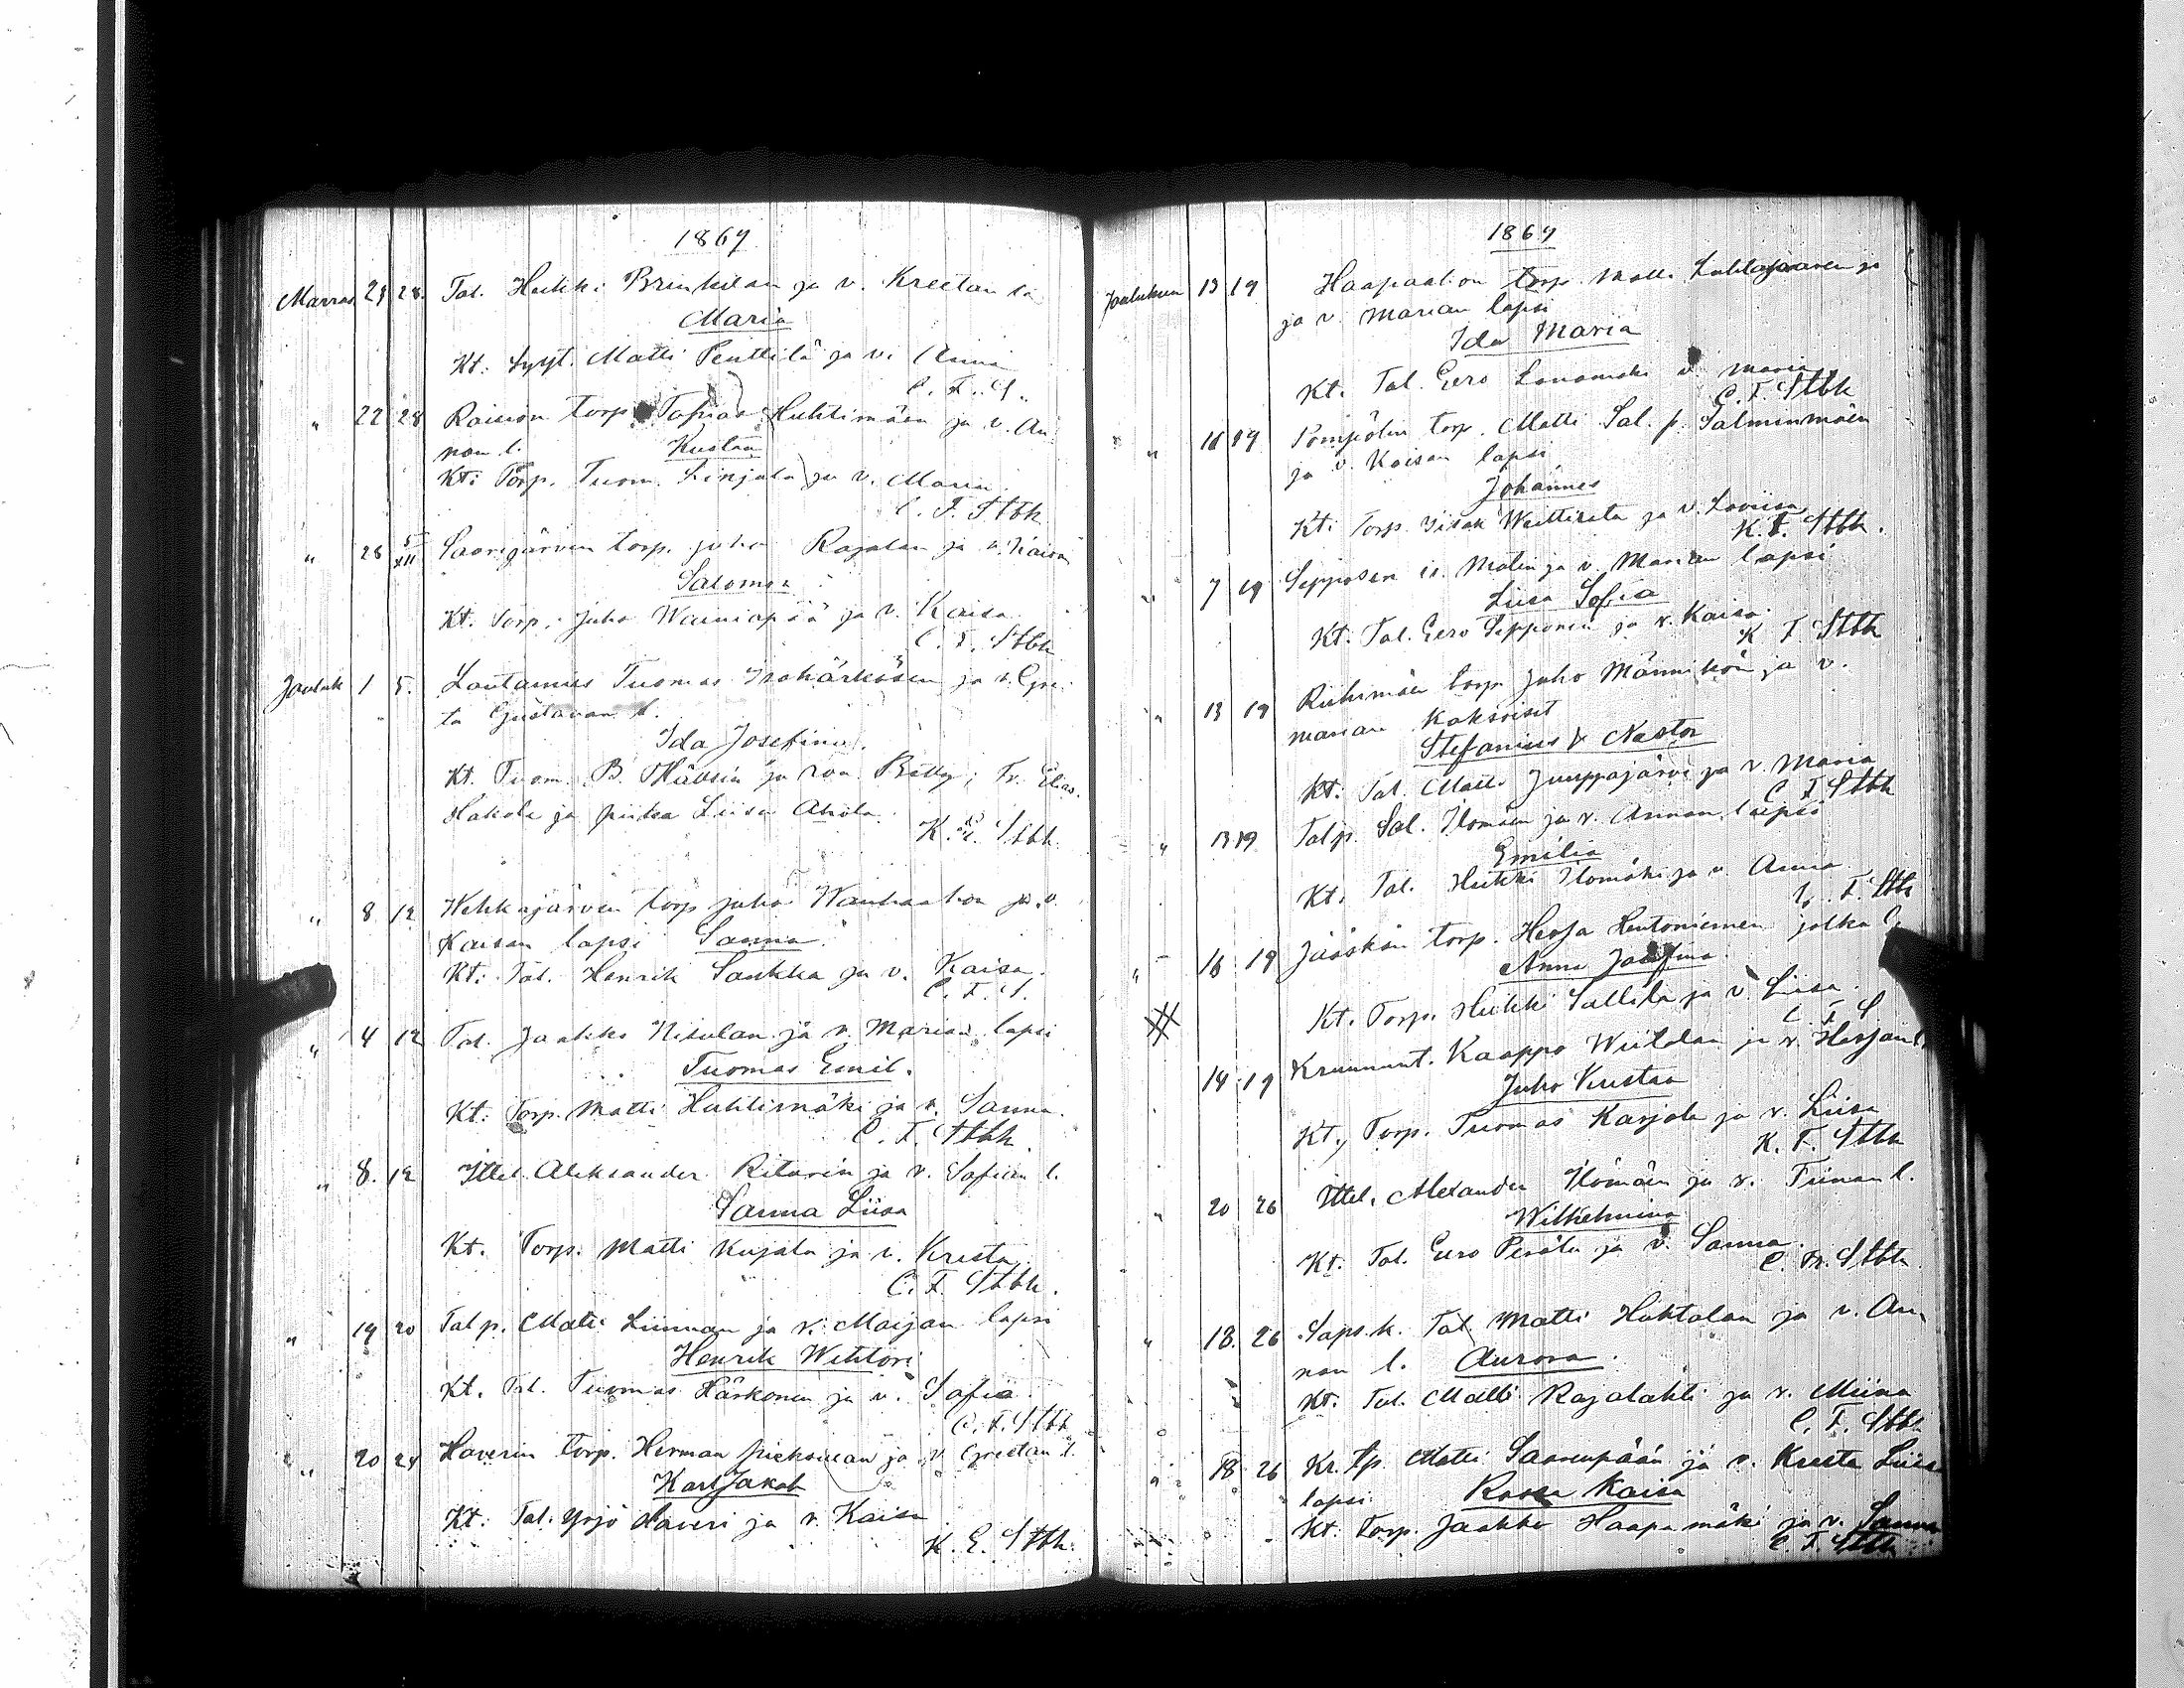 1869
Marras 21 28. Tal. Heikki Brinkilan ja v. Kreetan la
Maria
Kt: Syyt. Matti Penttilä ja v. Anna
C. F. S.
" 22 28 Raision torp. Tapias Huhtimäen ja v. An
nan l. Kustaa
Kt: Torp. Tuom. Linjala ja v. Maria.
C. F. Stbk
" 28 5/XII Saarijärven torp. juho Rajalan ja v. Kaisan
Salomon
Kt. torp. juho Wainiopää ja v. Kaisa
C. F. Stbk
Jouluk 1 5. Lautamies Tuomas Isohärkösen ja v. Gre
ta Gustavan l.
Ida Josefina.
Kt. Tuom. B. ja rva Betty; Tr. Elias.
Hakola ja piika Liisa Ahola.
K. E. Stbk.
" 8 12 Wehkajärven torp juho ja v.
Kaisan lapsi Sanna
Kt: Tal. Henrik Saukka ja v. Kaisa.
C. F. S.
" 4 12 Tal. Jaakko Nikulan ja v. Marian lapsi
Tuomas Emil.
Kt: Torp. Matti Huhtimäki ja v. Sanna.
C. F. Stbk
" 8. 12 Ittel. Aleksander Ritarin ja v. Sofian l.
Sanna Liisa
Kt. Torp. Matti Kujala ja v. Kreeta
C. F. Stbk.
" 19 20 Talp. Matti Linnan ja v. Maijan lapsi
Henrik Wihtori
Kt. Tal. Tuomas Härkönen ja v. Sofia
C. F. Stbk
" 20 24 Haverin torp. Herman ja v Greetan l.
Karl Jakob
Kt: Tal. Yrjö Haveri ja v. Kaisa
K. E. Stbk.
1869
Joulukuu 13 19 Haapaahon torp. Matti ja
ja v. Marian lapsi
Ida Maria
Kt. Tal. Eero Lanamäki v. Maria
C. F. Stbk
" 11 19 Pompölin torp. Matti Sal. p. Salminmäen
ja v. Kaisan lapsi
Johannes
Kt: Torp. Iisak ja v. Loviisa
K. F. Stbk.
" 7 19 Sepposen is. Matin ja v. Marian lapsi
Liisa Sofia
Kt: Tal. Eero Sepponen ja v. Kaisa.
K F Stbk
" 13 19 Riihimäen torp. Juho Männikön ja v.
Marian kaksoiset
Stefanius & Nestor
Kt: Tal. Matti Jumppajärvi ja v. Maria
C F Stbk
" 13 19 Talp. Sal. Ilomäen ja v. Annan lapsi
Emilia
Kt. Tal. Heikki Ilomäki ja v Anna
C. F. Stbk
" 16 19 Jääskän torp. Hesja Hentoniemen jolka l
Anna Josefina.
Kt. Torp. Heikki Sallila ja v. Liisa.
C F S
14 19 Kruunnunt. Kaappo Wiitalan ja v. Hesjan l.
Juho Kustaa
Kt., Torp. Tuomas Karjala ja v. Liisa
K. F. Stbk
" 20 26 Ittel. Alexander Ilomäen ja v. Tiinan l.
Wilhelmina
Kt. Tal. Eero Perälä ja v. Sanna.
C. Fr. Stbk
" 18. 26 Saps.k. Tal. Matti Huhtalan ja v. An
nan l. Aurora.
Kt. Tal. Matti Rajalahti ja v. Miina
C. F. Stbk
" 18 26 Kr. tp. Matti Saarenpään ja v. Kreeta Liisa
lapsi. Roosa Kaisa
Kt: Torp. Jaakko Haapamäki ja v. Sanna
C. F. Stbk